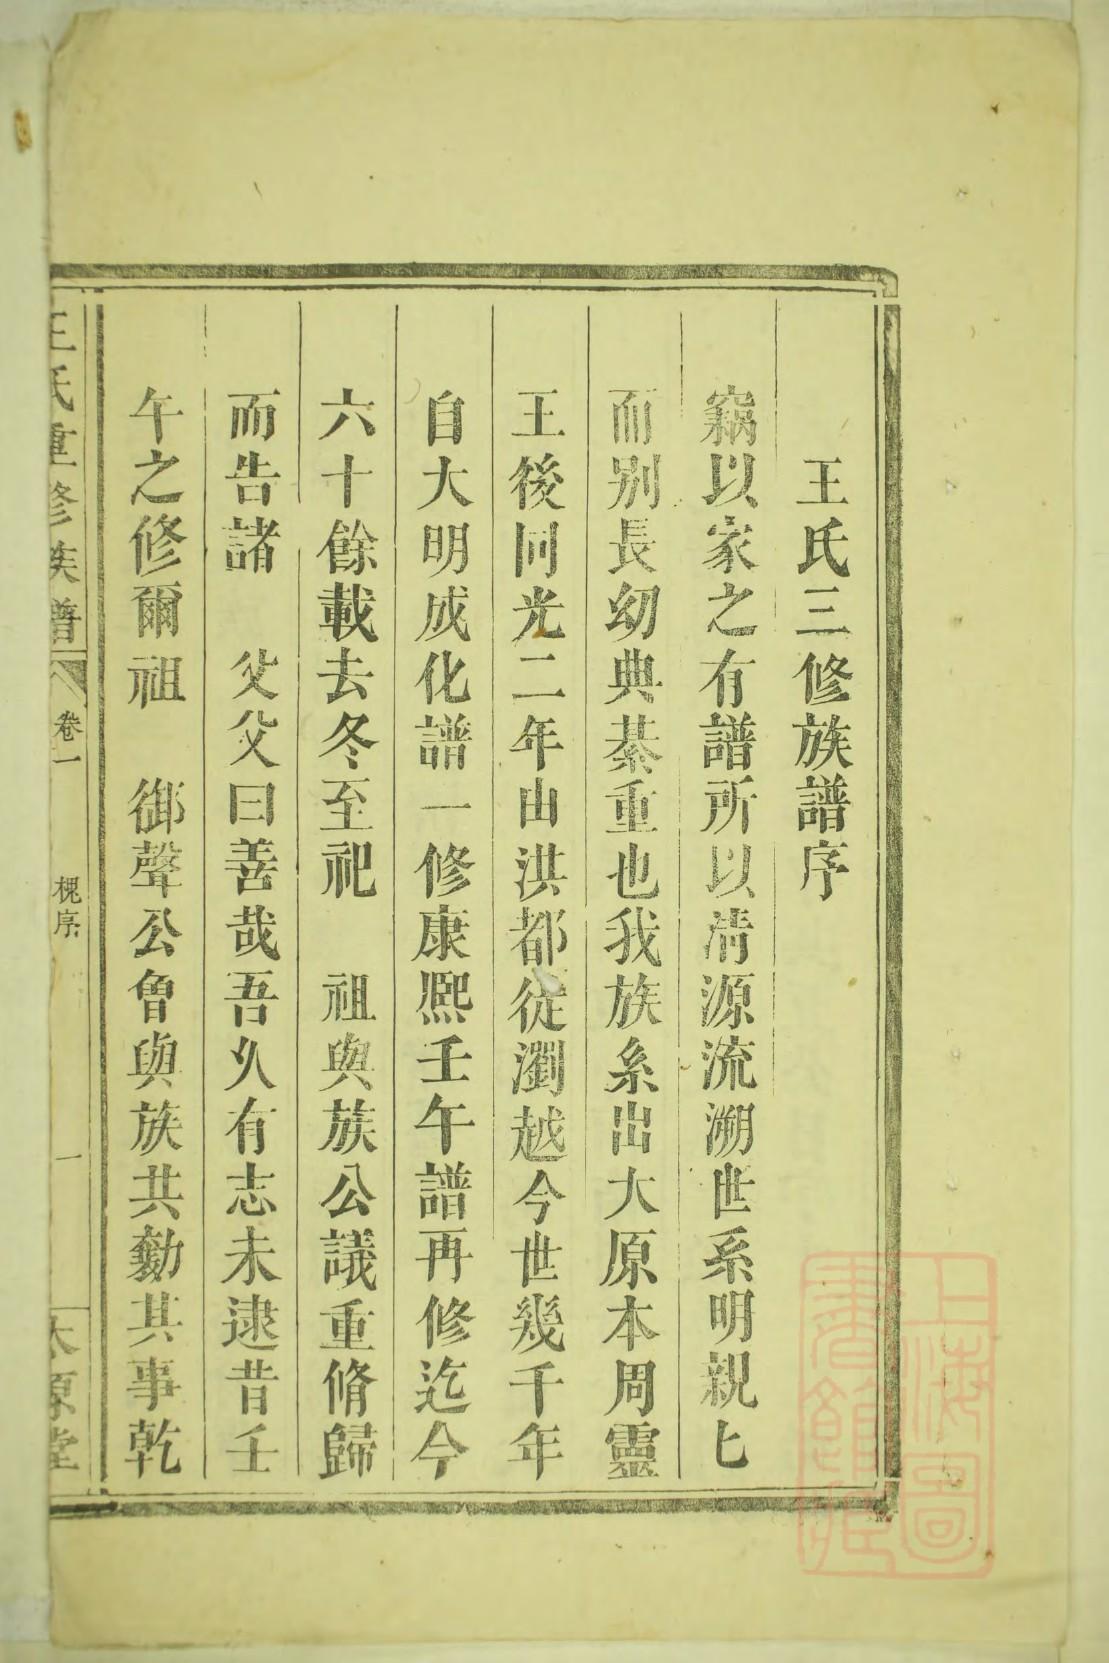 王氏三修族譜序
竊以家之有譜所以清源流溯世系明親匕
而别長幼典綦重也我族系出大原本周靈
王後同光二年由洪都從瀏越今世幾千年
自大明成化譜一修康熈壬午譜再修迄今
六十餘載去冬至祀　祖與族公議重脩歸
而告諸　父父曰善哉吾乆有志未逮昔壬
午之修爾祖　御聲公曾與族共勷其事乾
王氏重修族譜
卷一
槐序
一
太原堂
上海圖
書館藏